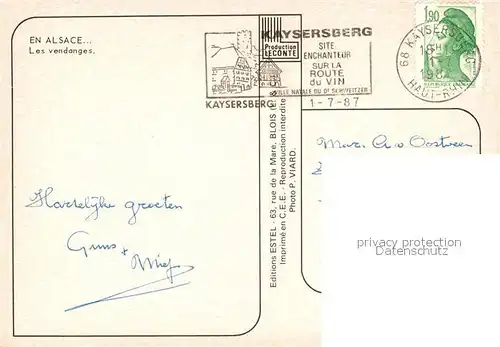 EN ALSACE...
Les vendanges.
KAYSERSBERG
Production
LECONTE
KAYSERSBERG
SITE
ENCHANTEUR
SUR LA
ROUTE
du VIN
VILLE NATALE DU Dr SCHWEITZER
1-7-87
1,90
68 KAYSERSBERG
18H
1-7
1987
HAUT-RHIN
Editions ESTEL - 63, rue de la Mare, BLOIS
Imprimé en C.E.E. - Reproduction interdite
Photo P. VIARD.
Hartelijke groeten
Guus +
Miep
A. v. Oostveen
privacy protection
Datenschutz